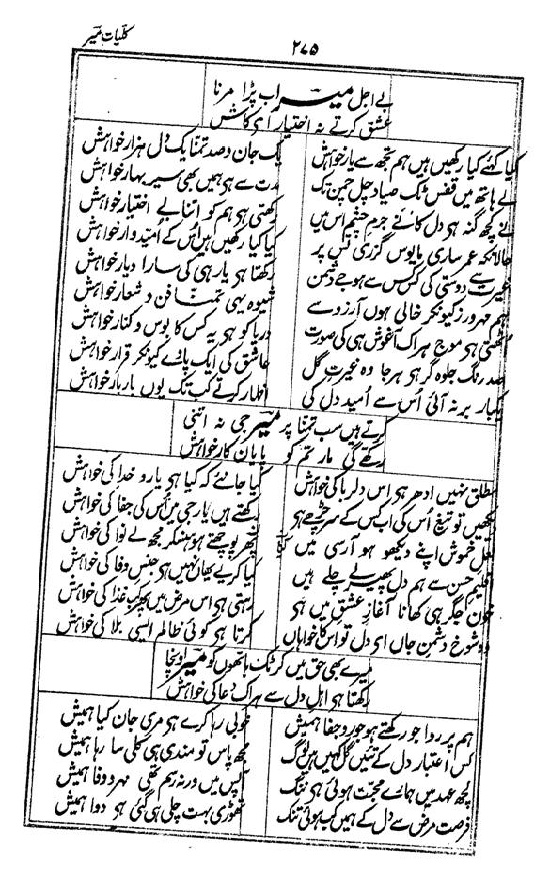 کلیات میر
۲۷۵
بے اجل میر اب پڑا مرنا
عشق کرتے نہ اختیار اے کاش
کیا کہئے کیا رکھیں ہیں ہم تجھ سے یار خواہش
یک جان و صد تمنا یک دل ہزار خواہش
لے ہاتھ میں قفس ٹک صیاد چل چمن تک
مدت سے ہے ہمیں بھی سیر بہار خواہش
نے کچھ گنہ ہے دل کا نے جرم چشم اس میں
رکھتی ہے ہم کو اتنا بے اختیار خواہش
حالانکہ عمر ساری مایوس گزری تس پر
کیا کیا رکھیں ہیں اس کے امیدوار خواہش
غیرت سے دوستی کی کس کس سے ہوجے دشمن
رکھتا ہے یار ہی کی سارا دیار خواہش
ہم مہرورز کیونکر خالی ہوں آرزو سے
شیوہ یہی تمنا فن و شعار خواہش
اٹھتی ہے موج ہر اک آغوش ہی کی صورت
دریا کو ہے یہ کس کا بوس و کنار خواہش
صد رنگ جلوہ گر ہے ہر جا وہ غیرت گل
عاشق کی ایک پائے کیونکر قرار خواہش
یکبار بر نہ آئی اس سے امید دل کی
اظہار کرتے کب تک یوں بار بار خواہش
کرتے ہیں سب تمنا پر میر جی نہ اتنی
رکھے گی مار تم کو پایان کار خواہش
مطلق نہیں ادھر ہے اس دلربا کی خواہش
کیا جانئے کہ کیا ہے یارو خدا کی خواہش
دیکھیں تو تیغ اس کی اب کس کے سر چڑھے ہے
رکھتے ہیں یار جی میں اس کی جفا کی خواہش
لعل خموش اپنے دیکھو ہو آرسی میں
پھر پوچھتے ہو ہنسکر مجھ بے نوا کی خواہش
اقلیم حسن سے ہم دل پھیر لے چلے ہیں
کیا کریے یھاں نہیں ہے جنس وفا کی خواہش
خون جگر ہی کھانا آغاز عشق میں ہے
رہتی ہے اس مرض میں پھر کب غذا کی خواہش
وہ شوخ دشمن جاں اے دل تو اس کا خواہاں
کرتا ہے کوئی ظالم ایسی بلا کی خواہش
میرے بھی حق میں کر ٹک ہاتھوں کو میر اونچا
رکھتا ہے اہل دل سے ہر اک دعا کی خواہش
ہم پر روا جو رکھتے ہو جور و جفا ہمیش
خوبی رہا کرے ہے مری جان کیا ہمیش
کس اعتبار دل کے تئیں گل کہیں ہیں لوگ
مجھ پاس تو مندی ہی کلی سا رہا ہمیش
کچھ عہد میں ہمارے محبت ہوئی ہے ننگ
آپس میں ورنہ رسم تھی مہر و وفا ہمیش
فرصت مرض سے دل کے ہمیں کب ہوئی تنک
تھوڑی بہت چلی ہی گئی ہے دوا ہمیش